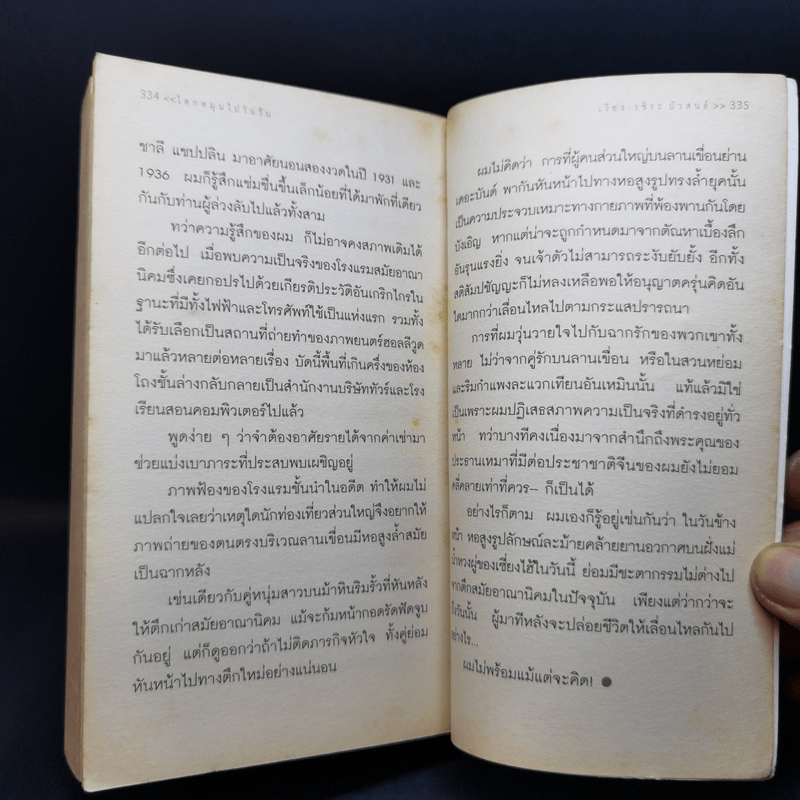 334 <<โลกหมุนไปวันวัน
ชาลี แชปปลิน มาอาศัยนอนสองงวดในปี 1931 และ
1936 ผมก็รู้สึกแช่มชื่นขึ้นเล็กน้อยที่ได้มาพักที่เดียว
กันกับท่านผู้ล่วงลับไปแล้วทั้งสาม
ทว่าความรู้สึกของผม ก็ไม่อาจคงสภาพเดิมได้
อีกต่อไป เมื่อพบความเป็นจริงของโรงแรมสมัยอาณา
นิคมซึ่งเคยกอปรไปด้วยเกียรติประวัติอันเกริกไกรใน
ฐานะที่มีทั้งไฟฟ้าและโทรศัพท์ใช้เป็นแห่งแรก รวมทั้ง
ได้รับเลือกเป็นสถานที่ถ่ายทำของภาพยนตร์ฮอลลีวูด
มาแล้วหลายต่อหลายเรื่อง บัดนี้พื้นที่เกินครึ่งของห้อง
โถงชั้นล่างกลับกลายเป็นสำนักงานบริษัททัวร์และโรง
เรียนสอนคอมพิวเตอร์ไปแล้ว
พูดง่าย ๆ ว่าจำต้องอาศัยรายได้จากค่าเช่ามา
ช่วยแบ่งเบาภาระที่ประสบพบเผชิญอยู่
ภาพฟ้องของโรงแรมชั้นนำในอดีต ทำให้ผมไม่
แปลกใจเลยว่าเหตุใดนักท่องเที่ยวส่วนใหญ่จึงอยากให้
ภาพถ่ายของตนตรงบริเวณลานเขื่อนมีหอสูงล้ำสมัย
เป็นฉากหลัง
เช่นเดียวกับคู่หนุ่มสาวบนม้าหินริมรั้วที่หันหลัง
ให้ตึกเก่าสมัยอาณานิคม แม้จะก้มหน้ากอดรัดฟัดจูบ
กันอยู่ แต่ก็ดูออกว่าถ้าไม่ติดภารกิจหัวใจ ทั้งคู่ย่อม
หันหน้าไปทางตึกใหม่อย่างแน่นอน
เวียง-วชิระ บัวสนธ์ >> 335
ผมไม่คิดว่า การที่ผู้คนส่วนใหญ่บนลานเขื่อนย่าน
เดอะบันด์ พากันหันหน้าไปทางหอสูงรูปทรงล้ำยุคนั้น
เป็นความประจวบเหมาะทางกายภาพที่พ้องพานกันโดย
บังเอิญ หากแต่น่าจะถูกกำหนดมาจากตัณหาเบื้องลึก
อันรุนแรงยิ่ง จนเจ้าตัวไม่สามารถระงับยับยั้ง อีกทั้ง
สติสัมปชัญญะก็ไม่หลงเหลือพอให้อนุญาตครุ่นคิดอัน
ใดมากกว่าเลื่อนไหลไปตามกระแสปรารถนา
การที่ผมวุ่นวายใจไปกับฉากรักของพวกเขาทั้ง
หลาย ไม่ว่าจากคู่รักบนลานเขื่อน หรือในสวนหย่อม
และริมกำแพงละแวกเทียนอันเหมินนั้น แท้แล้วมิใช่
เป็นเพราะผมปฏิเสธสภาพความเป็นจริงที่ดำรงอยู่ทั่ว
หน้า ทว่าบางทีคงเนื่องมาจากสำนึกถึงพระคุณของ
ประธานเหมาที่มีต่อประชาชาติจีนของผมยังไม่ยอม
คลี่คลายเท่าที่ควร-- ก็เป็นได้
อย่างไรก็ตาม ผมเองก็รู้อยู่เช่นกันว่า ในวันข้าง
หน้า หอสูงรูปลักษณ์ละม้ายคล้ายยานอวกาศบนฝั่งแม่
น้ำหวงผู่ของเซี่ยงไฮ้ในวันนี้ ย่อมมีชะตากรรมไม่ต่างไป
จากตึกสมัยอาณานิคมในปัจจุบัน เพียงแต่ว่ากว่าจะ
ถึงวันนั้น ผู้มาทีหลังจะปล่อยชีวิตให้เลื่อนไหลกันไป
อย่างไร...
ผมไม่พร้อมแม้แต่จะคิด! ●